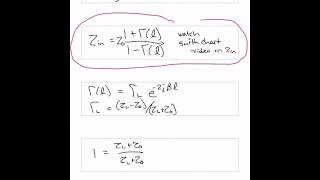 Zin = Z0 1 + Γ(l) / 1 - Γ(l) watch
smith chart
video on Zin
Γ(l) = ΓL e^-2jβl
ΓL = (ZL-Z0)/(ZL+Z0)
1 = ZL+Z0 / ZL+Z0